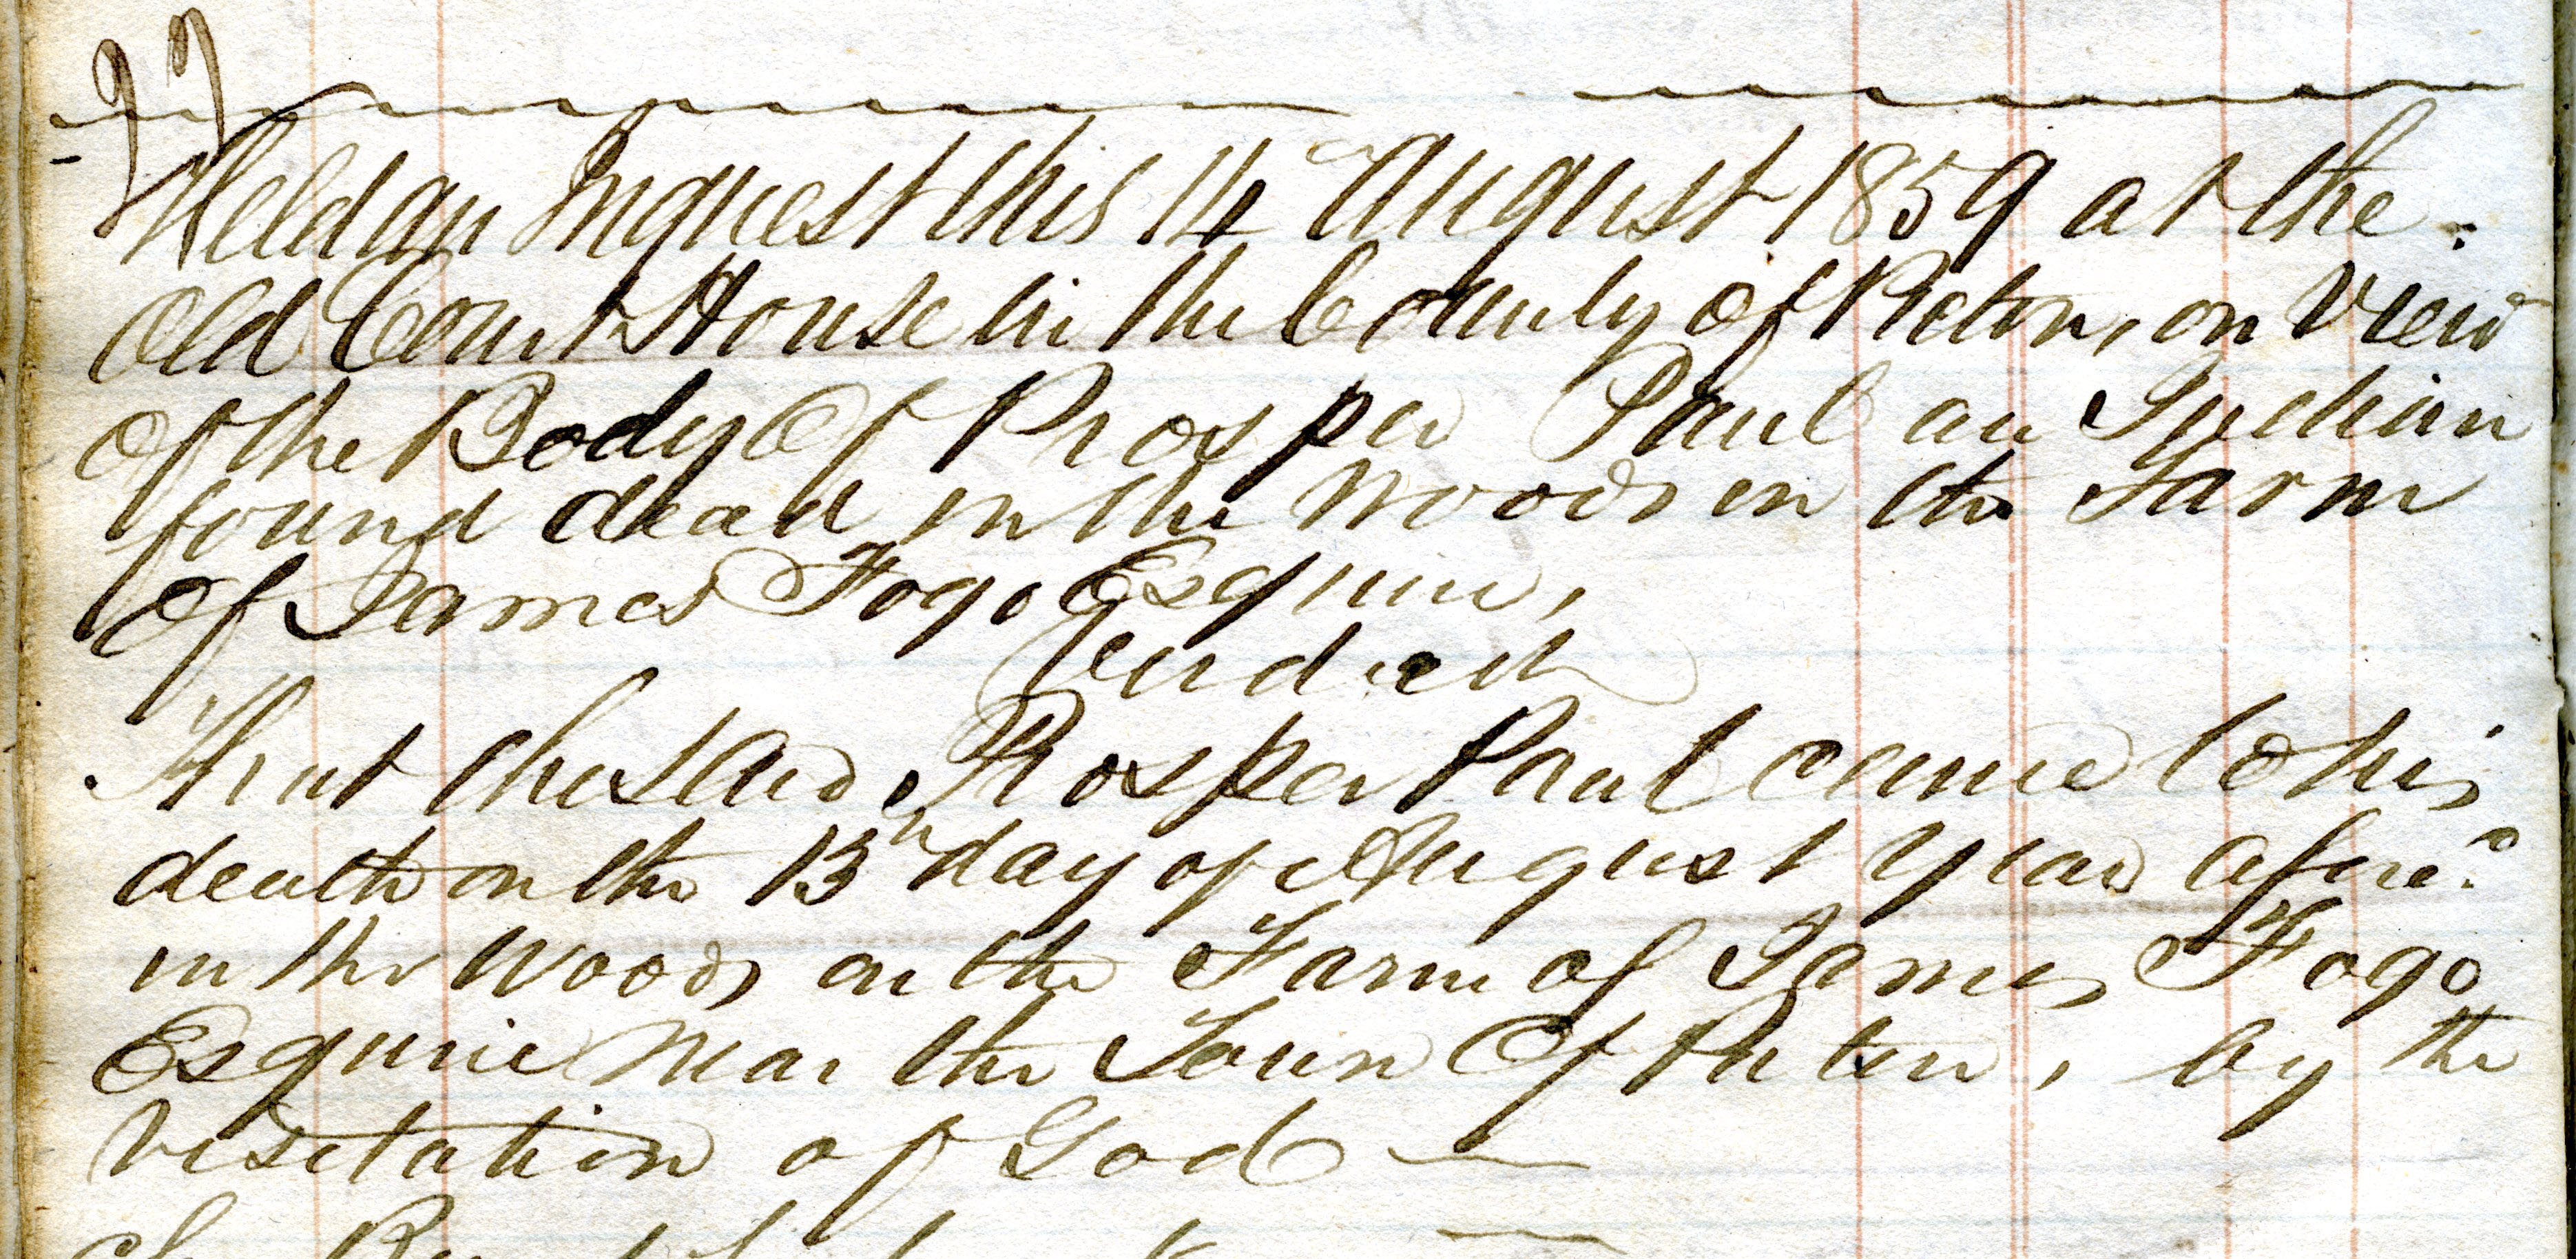 77
Held an Inquest this 14 August 1859 at the
Old Court House in the County of Pictou, on View
Of the Body Of Prosper Paul an Indian
found dead in the Woods on the Farm
Of James Fogo Esquire,
Verdict
That the said Prosper Paul came to his
death on the 13th day of August Year afored
in the Woods on the Farm of James Fogo
Esquire Near the Town Of Pictou, by the
Visitation of God